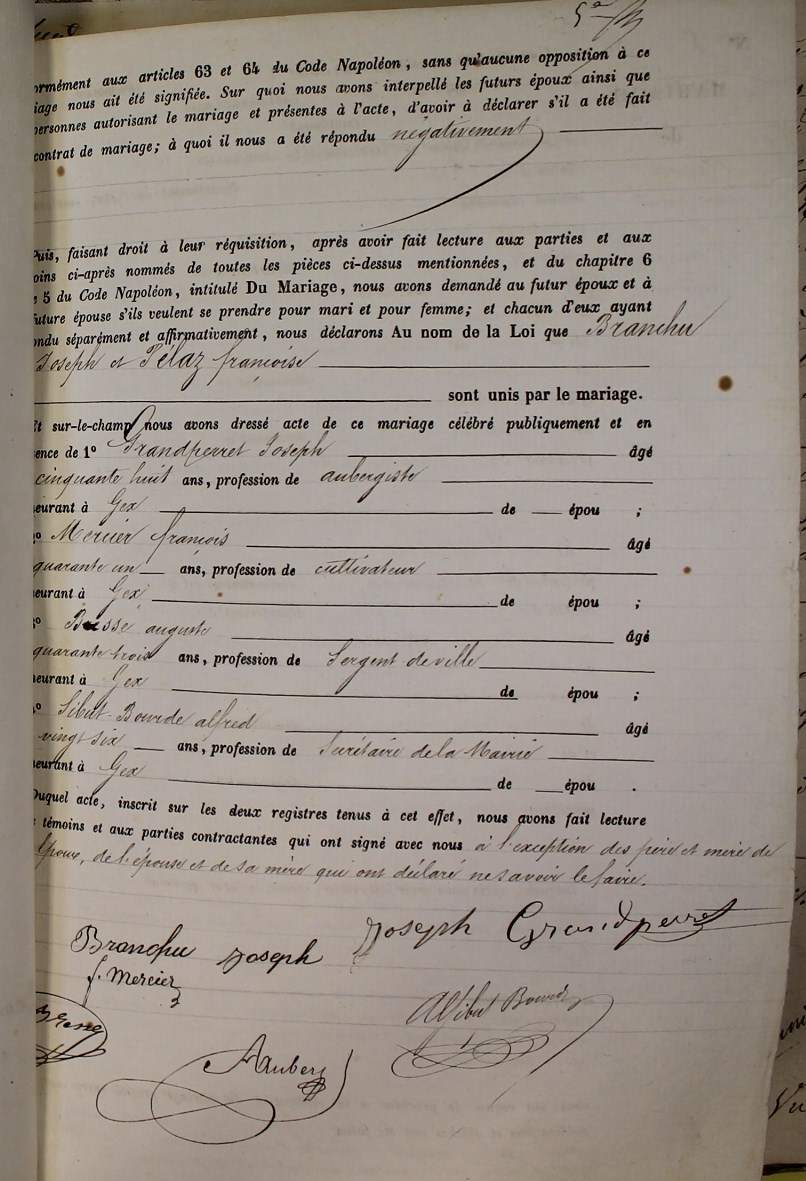 ormément aux articles 63 et 64 du Code Napoléon, sans qu'aucune opposition à ce
iage nous ait été signifiée. Sur quoi nous avons interpellé les futurs époux ainsi que
personnes autorisant le mariage et présentes à l'acte, d'avoir à déclarer s'il a été fait
contrat de mariage; à quoi il nous a été répondu négativement
Puis, faisant droit à leur réquisition, après avoir fait lecture aux parties et aux
oins ci-après nommés de toutes les pièces ci-dessus mentionnées, et du chapitre 6
5 du Code Napoléon, intitulé Du Mariage, nous avons demandé au futur époux et à
future épouse s'ils veulent se prendre pour mari et pour femme; et chacun d'eux ayant
ondu séparément et affirmativement, nous déclarons Au nom de la Loi que Branchu
Joseph et Pélaz françoise
sont unis par le mariage.
Et sur-le-champ nous avons dressé acte de ce mariage célébré publiquement et en
ence de 1º Grandperret Joseph âgé
cinquante huit ans, profession de aubergiste
eurant à Gex de épou ;
º Mercier françois âgé
quarante un ans, profession de cultivateur
eurant à Gex de épou ;
º auguste âgé
quarante trois ans, profession de Sergent de ville
eurant à Gex de épou ;
º Sibut-Bourde alfred âgé
vingt six ans, profession de Secrétaire de la Mairie
eurant à Gex de épou .
Duquel acte, inscrit sur les deux registres tenus à cet effet, nous avons fait lecture
témoins et aux parties contractantes qui ont signé avec nous à l'exception des père et mère de
l'époux, de l'épouse et de sa mère qui ont déclaré ne savoir le faire.
Branchu Joseph Joseph Grandperret
f. Mercier
ASibut Bourde